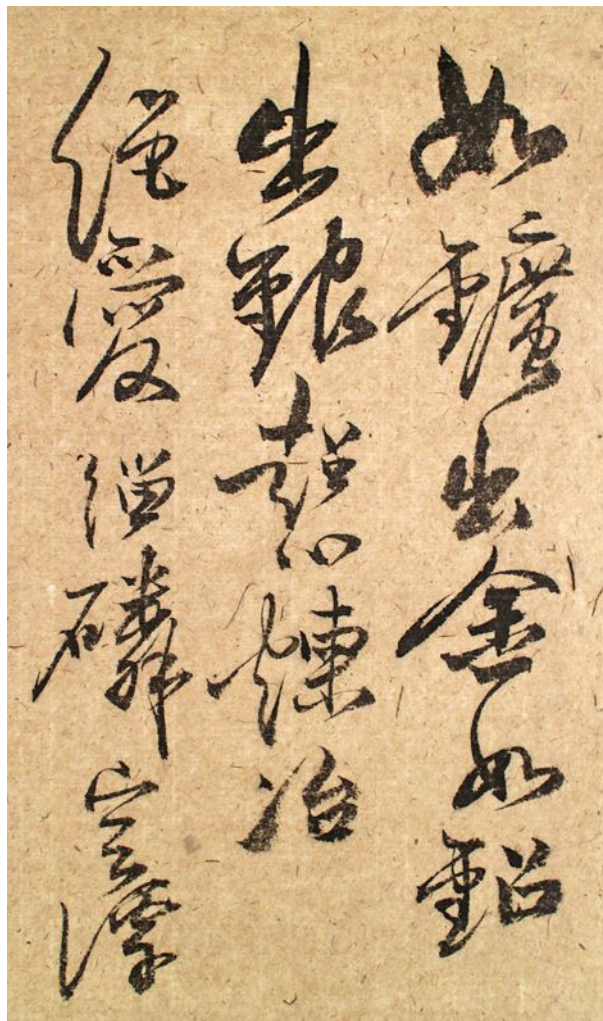 如鑛出金如鉛
出銀超心煉冶
絕愛緇磷空潭